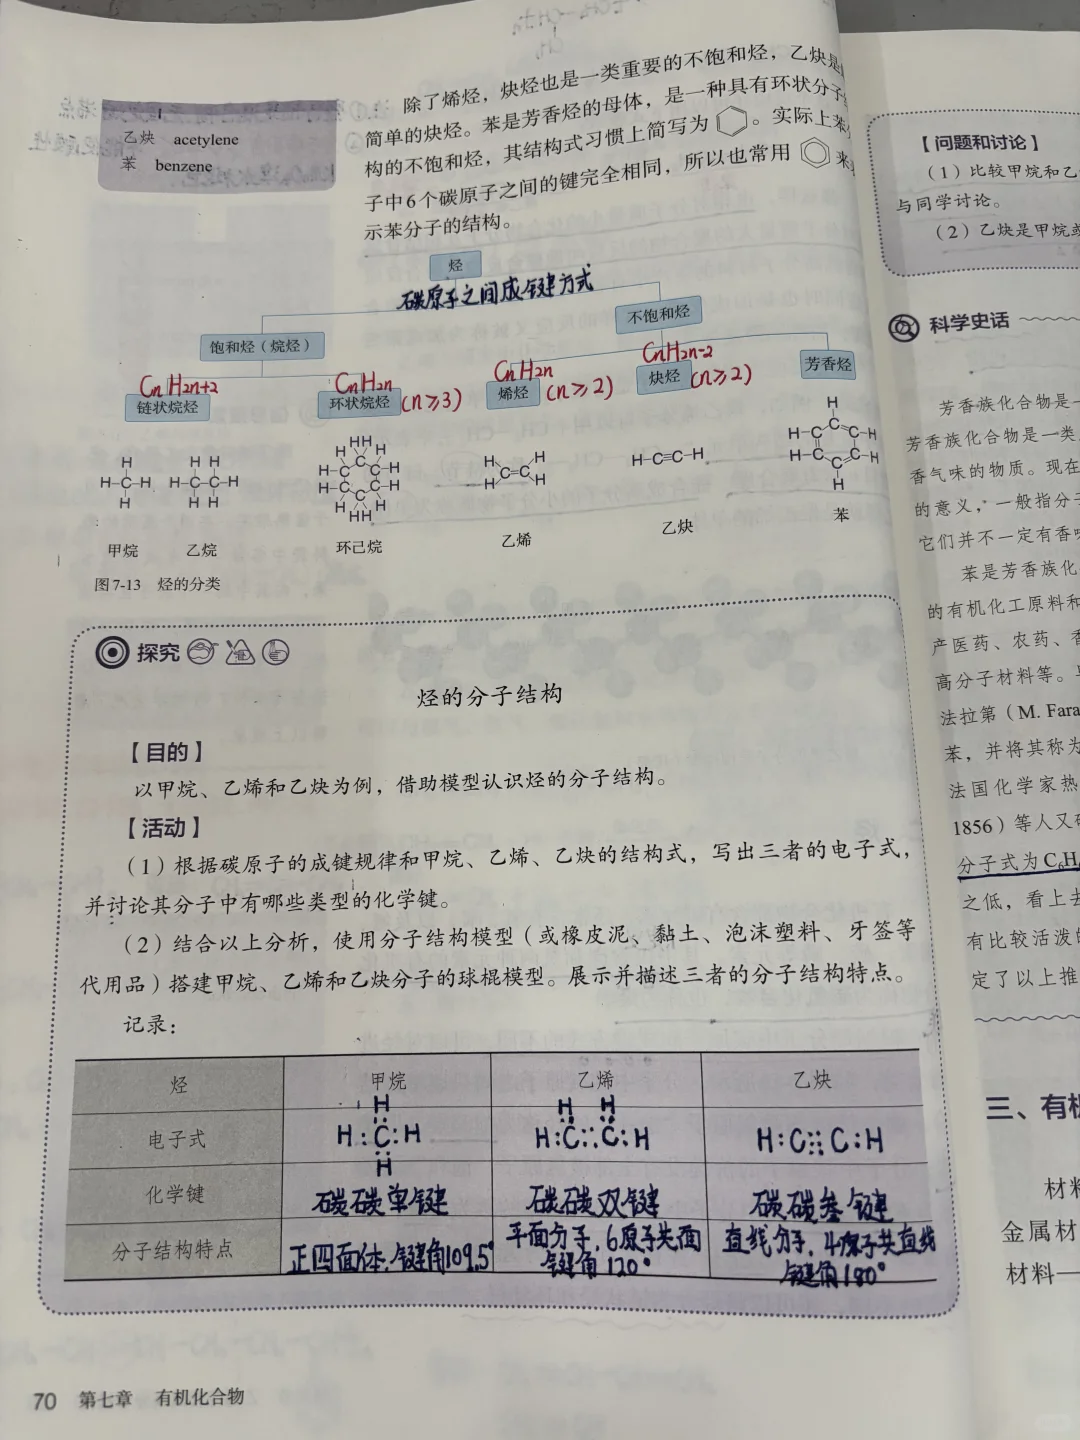 乙炔 acetylene
苯 benzene
除了烯烃，炔烃也是一类重要的不饱和烃，乙炔是
简单的炔烃。苯是芳香烃的母体，是一种具有环状分子
构的不饱和烃，其结构式习惯上简写为 。实际上苯
子中6个碳原子之间的键完全相同，所以也常用 来
示苯分子的结构。
烃
碳原子之间成键方式
饱和烃（烷烃）
不饱和烃
CnH2n+2
链状烷烃
CnH2n
环状烷烃 (n≥3)
CnH2n
烯烃 (n≥2)
CnH2n-2
炔烃 (n≥2)
芳香烃
甲烷
乙烷
环己烷
乙烯
H-C≡C-H
乙炔
苯
图7-13 烃的分类
探究
烃的分子结构
【目的】
以甲烷、乙烯和乙炔为例，借助模型认识烃的分子结构。
【活动】
（1）根据碳原子的成键规律和甲烷、乙烯、乙炔的结构式，写出三者的电子式，
并讨论其分子中有哪些类型的化学键。
（2）结合以上分析，使用分子结构模型（或橡皮泥、黏土、泡沫塑料、牙签等
代用品）搭建甲烷、乙烯和乙炔分子的球棍模型。展示并描述三者的分子结构特点。
记录：
烃 甲烷 乙烯 乙炔
H H H
电子式 H:C:H H:C::C:H H:C⋮⋮C:H
H
化学键 碳碳单键 碳碳双键 碳碳叁键
分子结构特点 正四面体.键角109.5° 平面分子，6原子共面 直线分子，4原子共直线
键角120° 键角180°
70 第七章 有机化合物
【问题和讨论】
（1）比较甲烷和乙
与同学讨论。
（2）乙炔是甲烷或
科学史话
芳香族化合物是一
芳香族化合物是一类
香气味的物质。现在
的意义，一般指分子
它们并不一定有香味
苯是芳香族化
的有机化工原料和
产医药、农药、香
高分子材料等。
法拉第（M. Fara
苯，并将其称为
法国化学家热
1856）等人又
分子式为C6H
之低，看上去
有比较活泼的
定了以上推
三、有机
材料
金属材
材料一